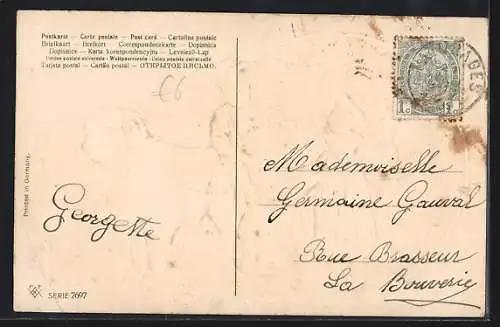 Postkarte — Carte postale — Post card — Cartolina postale
Briefkaart — Brefkort — Correspondenzkarte — Dopisnica
Dopisnice — Karta korespondencyjna — Levelező-Lap
Union postale universelle - Weltpostverein - Unione postale universale
Tarjeta postal — Cartão postal — ОТКРЫТОЕ ПИСЬМО.
C6
1c 1c
GES
Mademoiselle
Germaine Gauval
Rue Brasseur
La Bouverie
Georgette
Printed in Germany.
SERIE 7697